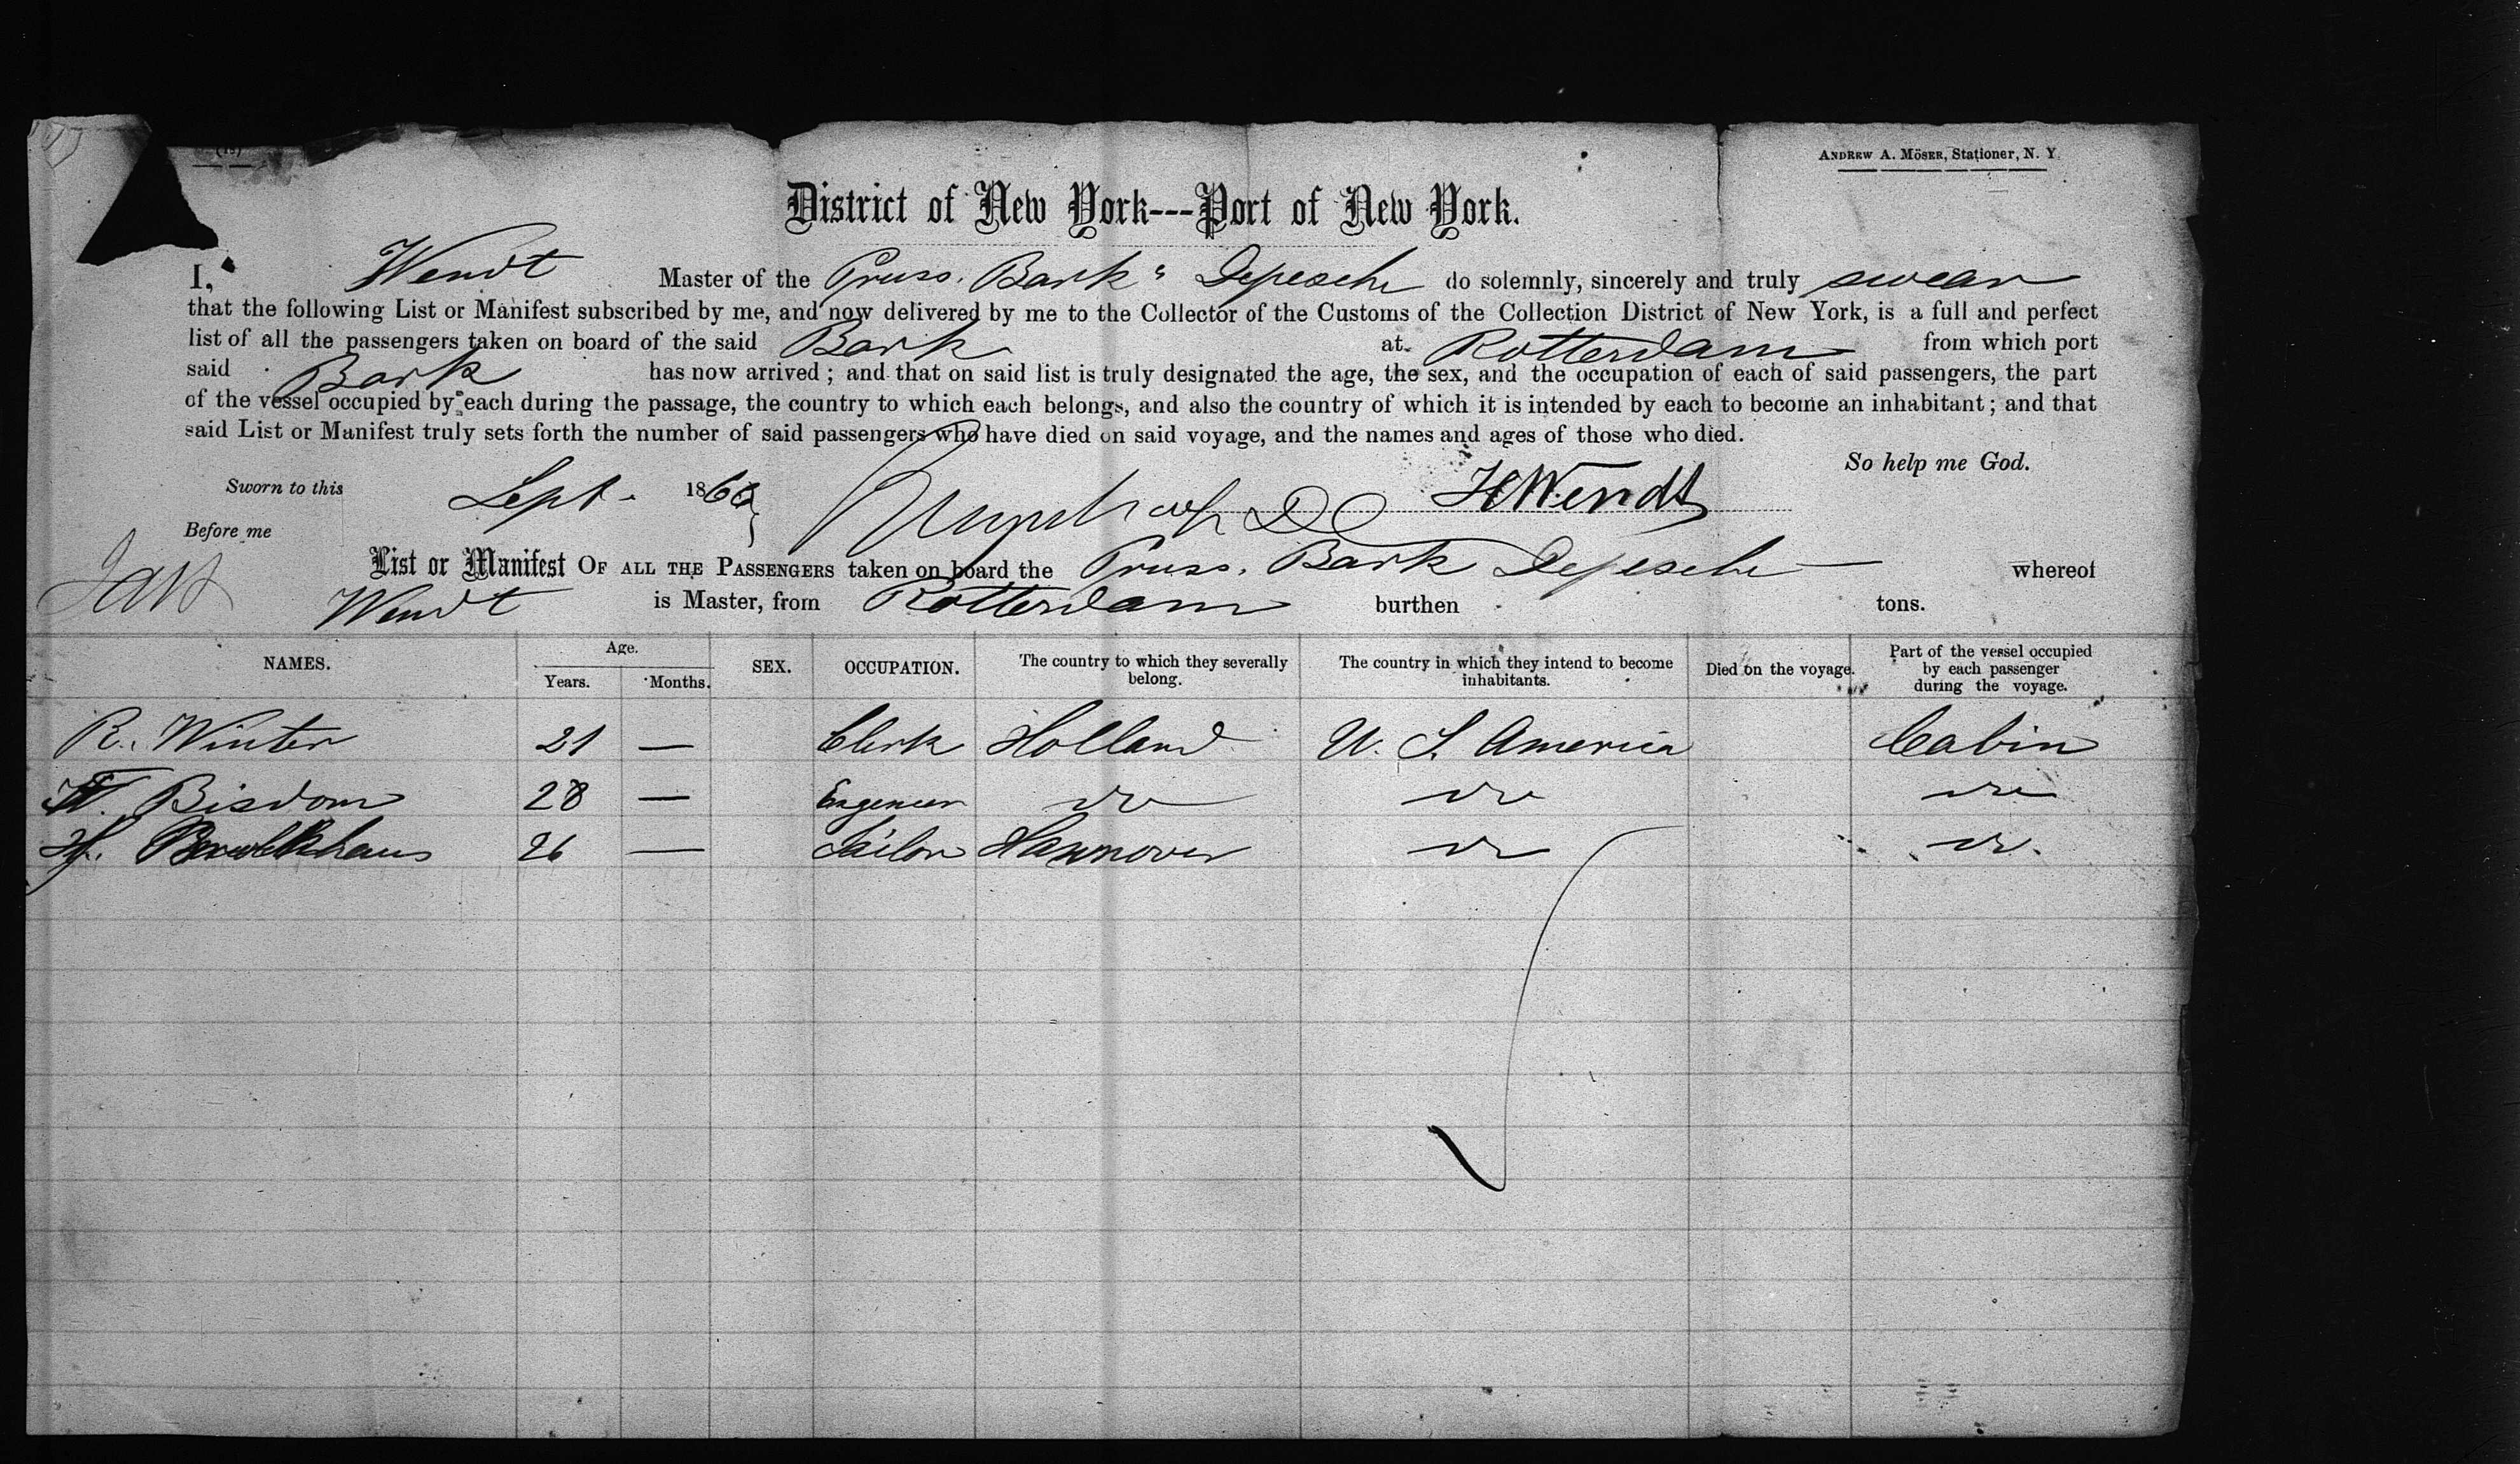 (13)
ANDREW A. MÖSER, Stationer, N. Y.
District of New York---Port of New York.
I, Wendt Master of the Pruss. Bark " Depesche do solemnly, sincerely and truly swear
that the following List or Manifest subscribed by me, and now delivered by me to the Collector of the Customs of the Collection District of New York, is a full and perfect
list of all the passengers taken on board of the said Bark at Rotterdam from which port
said Bark has now arrived; and that on said list is truly designated the age, the sex, and the occupation of each of said passengers, the part
of the vessel occupied by each during the passage, the country to which each belongs, and also the country of which it is intended by each to become an inhabitant; and that
said List or Manifest truly sets forth the number of said passengers who have died on said voyage, and the names and ages of those who died.
So help me God.
Sworn to this Sept. 186 HWendt
Before me
List or Manifest OF ALL THE PASSENGERS taken on board the Pruss. Bark Depesche whereof
Wendt is Master, from Rotterdam burthen tons.
NAMES. Age. Years. Months. SEX. OCCUPATION. The country to which they severally belong. The country in which they intend to become inhabitants. Died on the voyage. Part of the vessel occupied by each passenger during the voyage.
R. Winter 21 — Clerk Holland U. S. America Cabin
Bisdom 28 — Engeneer do do do
H. 26 — Sailor Hannover do do.